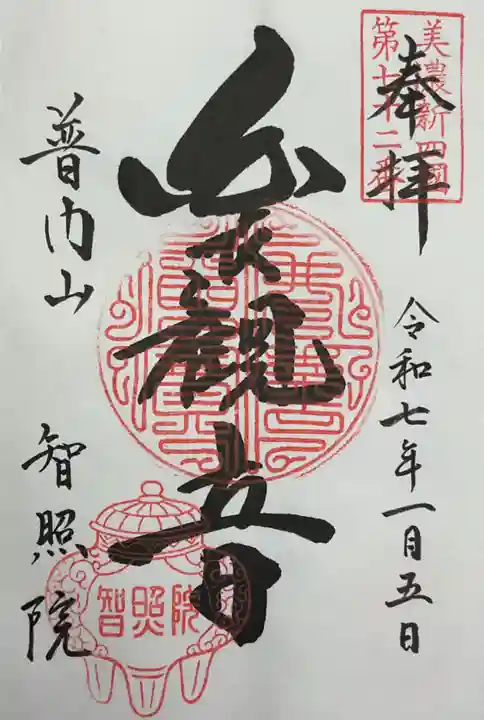 奉拝
美濃新四国
第七十二番
令和七年一月五日
観音
普門山
智照院
智照院